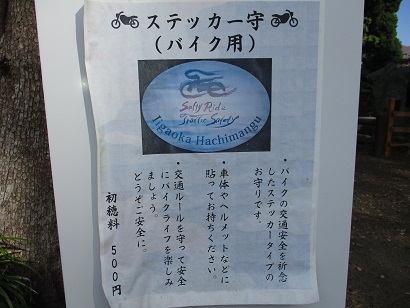 ステッカー守
（バイク用）
Safty Ride
Traffic Safety
Iigaoka Hachimangu
・バイクの交通安全を祈念
したステッカータイプの
お守りです。
・車体やヘルメットなどに
貼ってお持ちください。
・交通ルールを守って安全
にバイクライフを楽しみ
ましょう。
どうぞご安全に。
初穂料　５００円